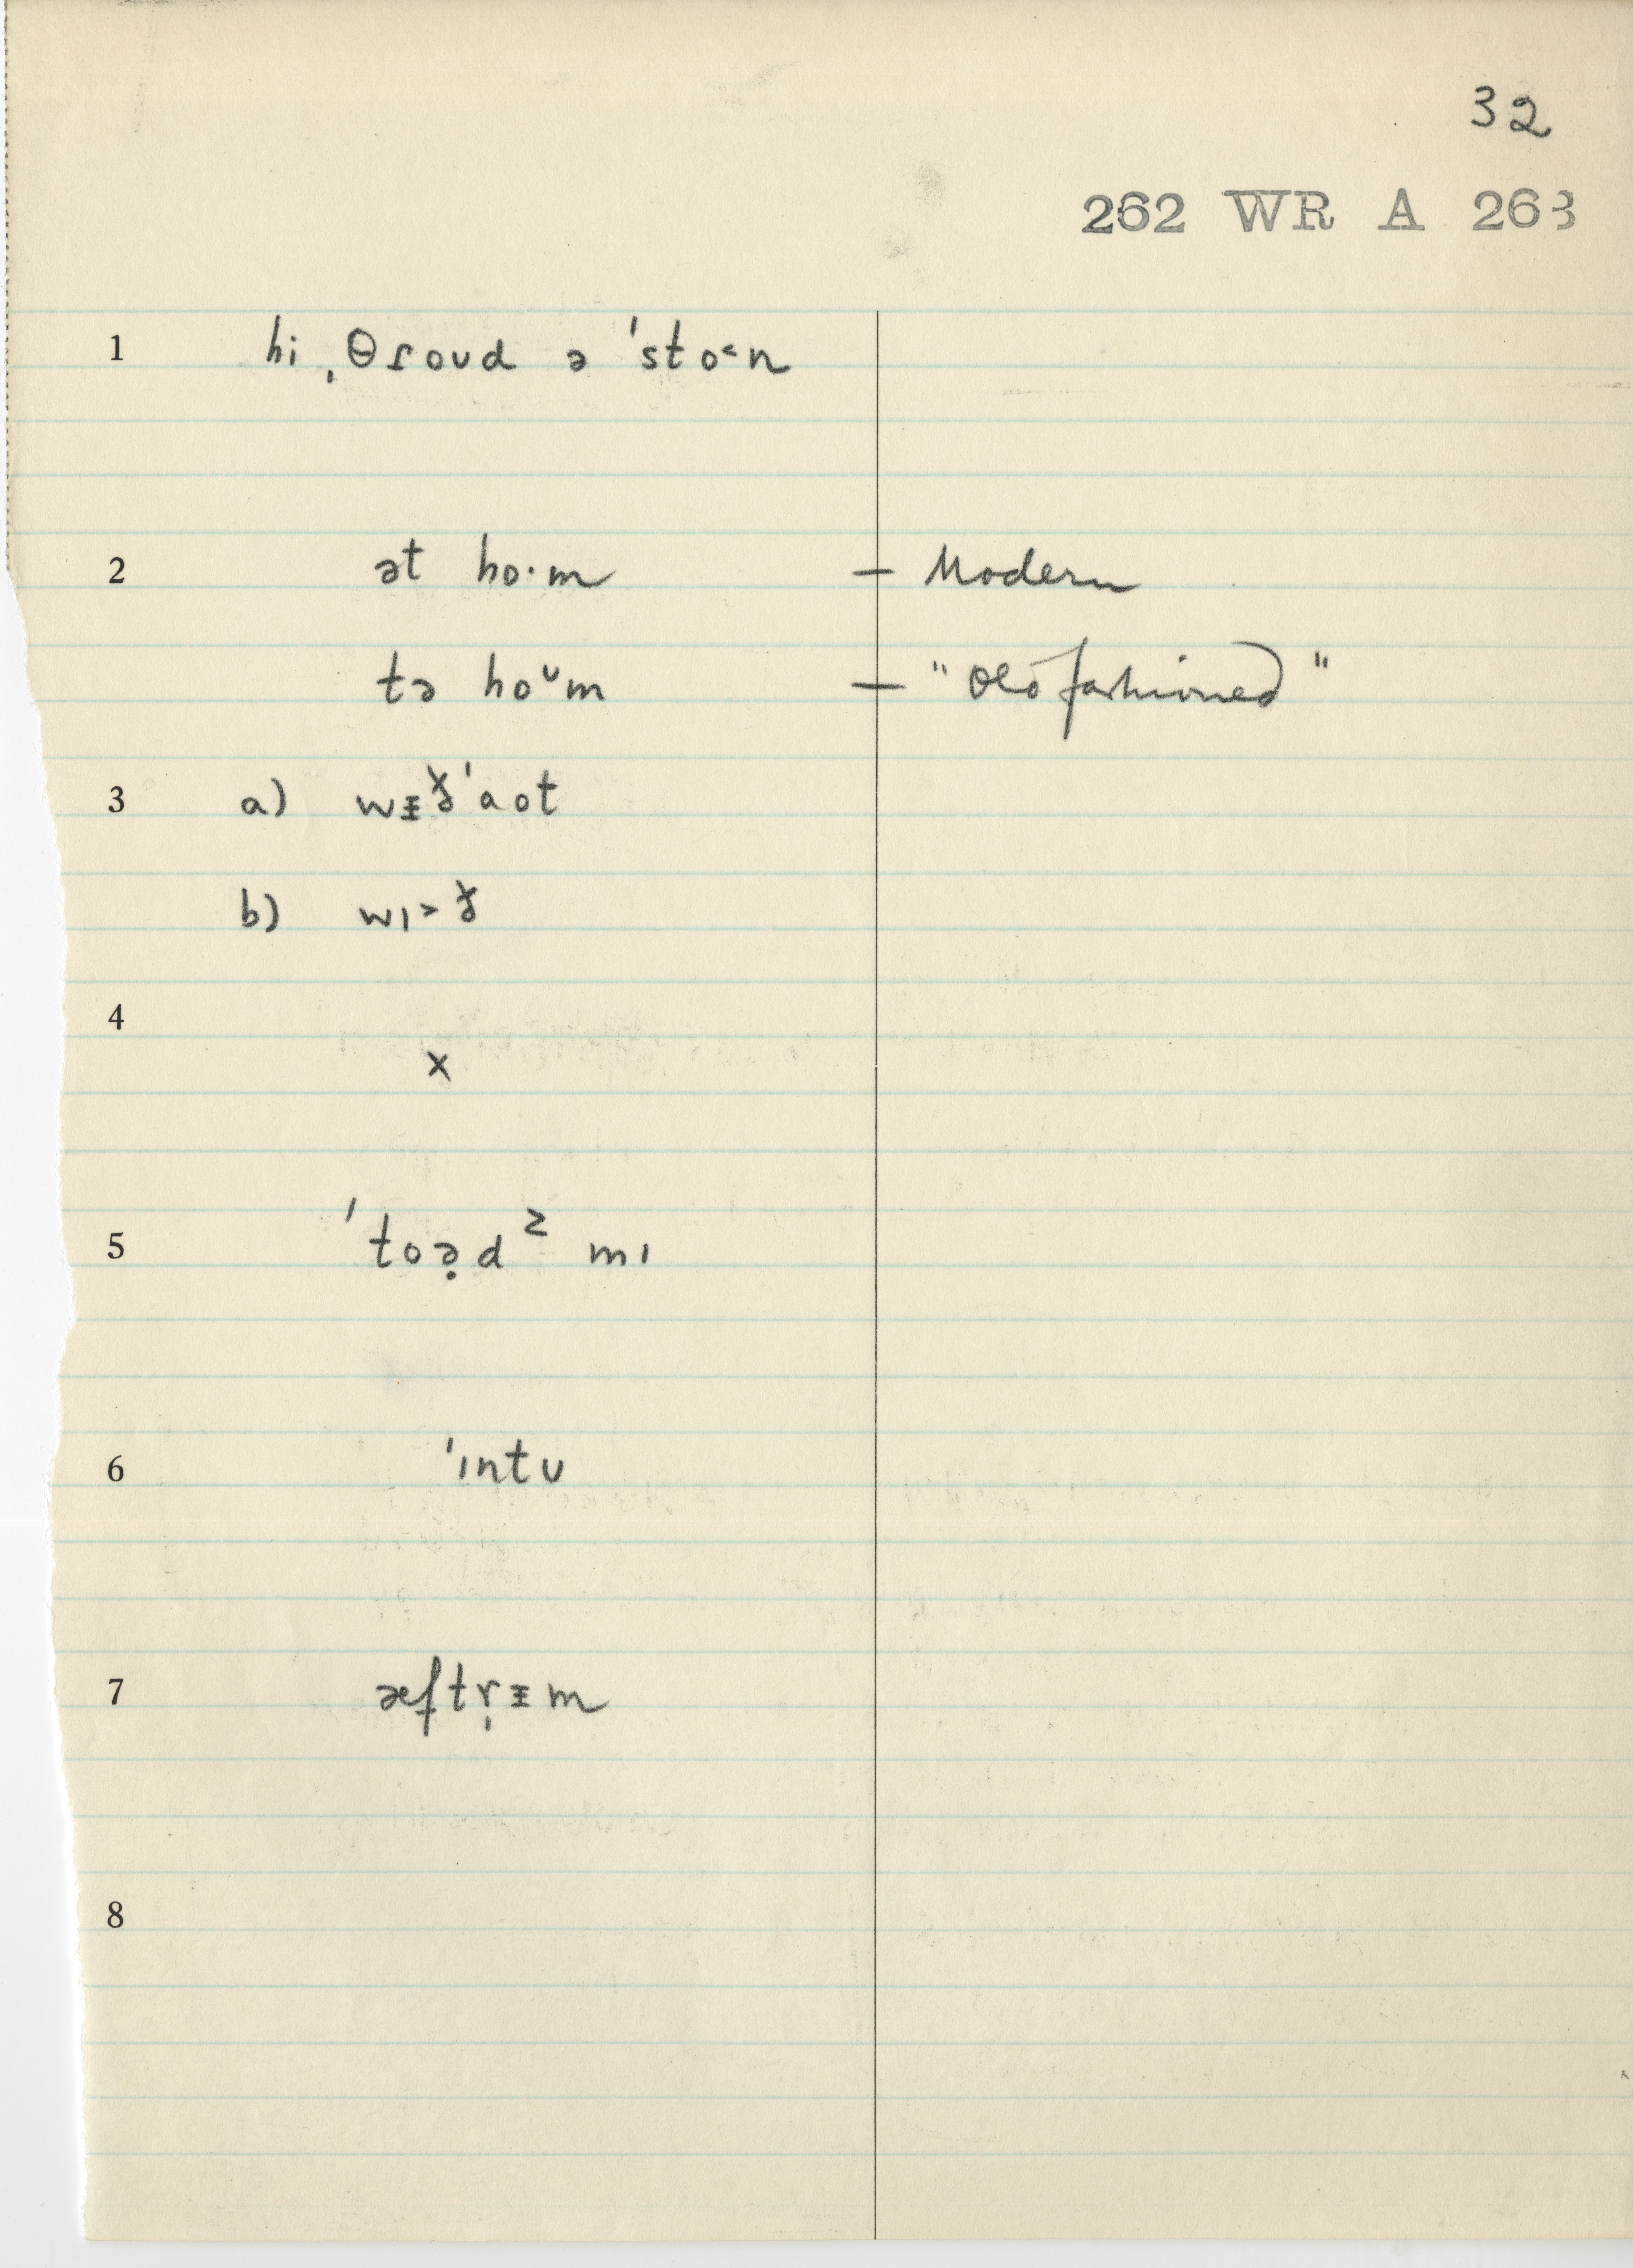 32
262 WR A 263
1 hi ˌθɾoʊd ə ˈsto˂n
2 ət ho·m — Modern
tə hoᶷm — "Old fashioned"
3 a) wᵻɤ̌ˈaot
b) wɪ˃ɤ̌
4
x
5 ˈtoə̣d² mɪ
6 ˈɪntʊ
7 æftr̩ᵻm
8